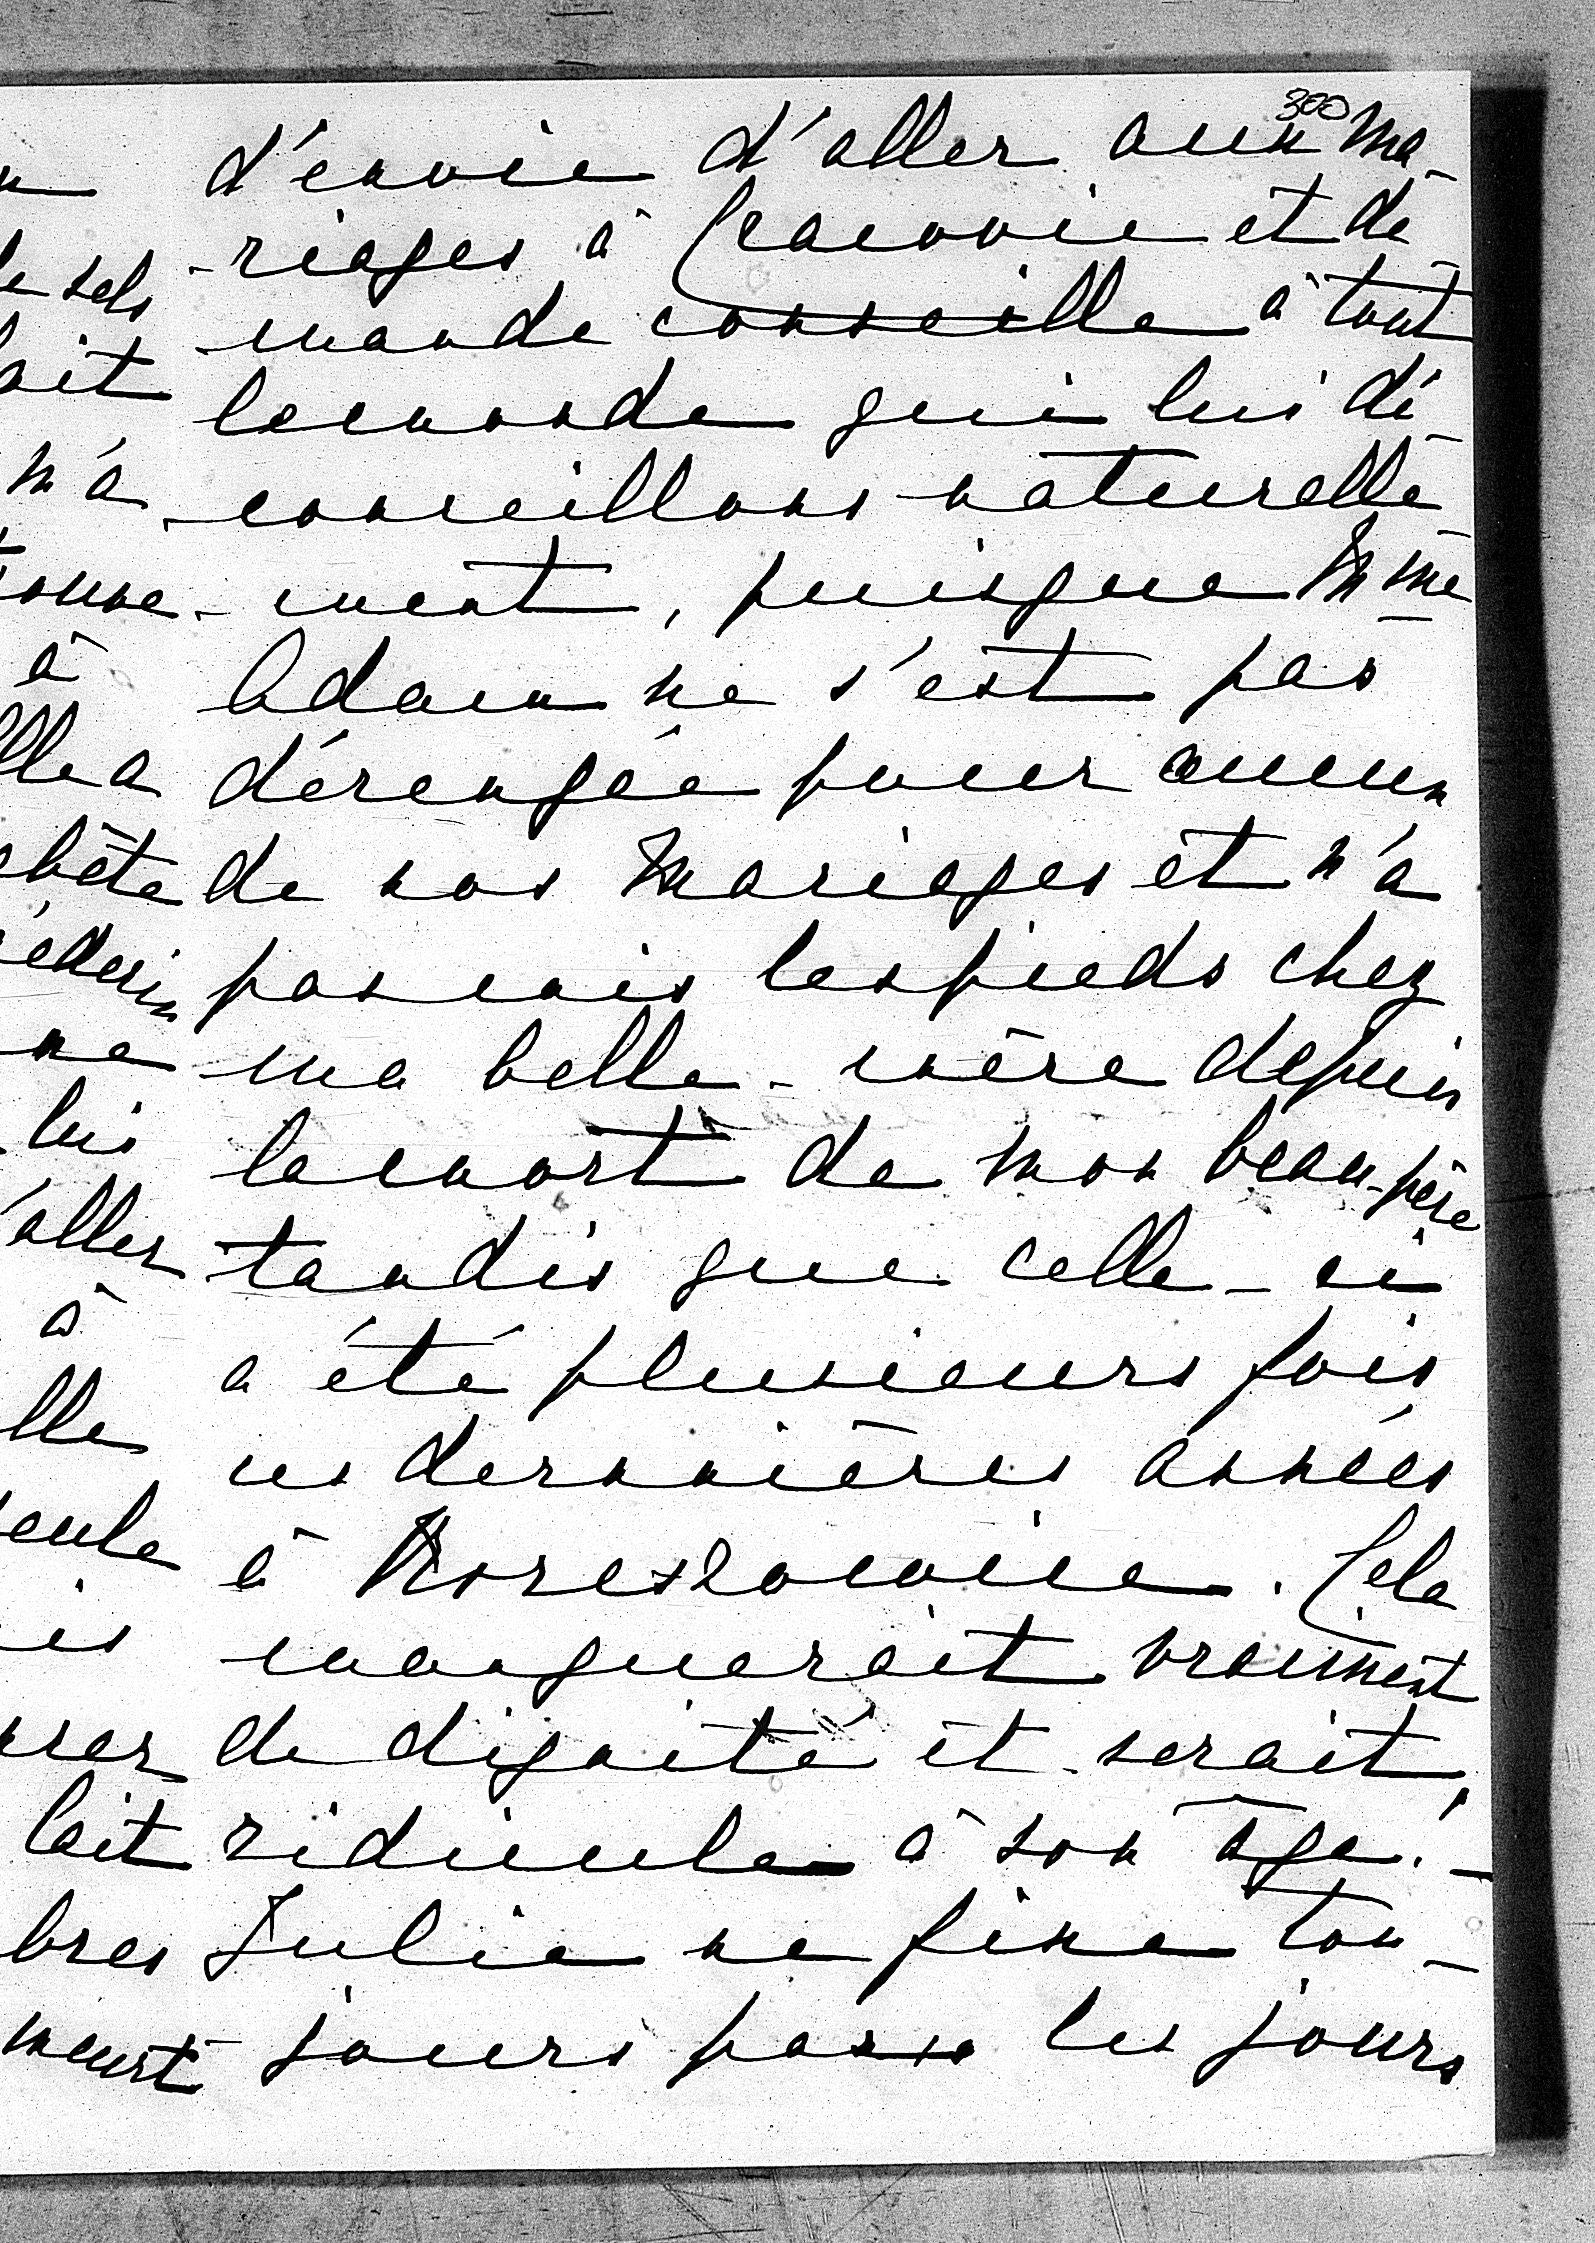 300
d'envie d'aller aux ma-
-riages à Cracovie et de-
-mande conseille à tout
le monde qui lui dé-
-conseillons naturelle-
-ment, puisque Mme
Adam ne s'est pas
dérengée pour aucun
de nos mariages et n'a
pas mis les pieds chez
ma belle-mère depuis
la mort de mon beau-père
tandis que celle-ci
a été plusieurs fois
ces dernnières années
à
. Cela
manquerait vraiment
de dignité et serait,
ridicule à son âge. -
Julie ne fine tou-
jours pas les jours